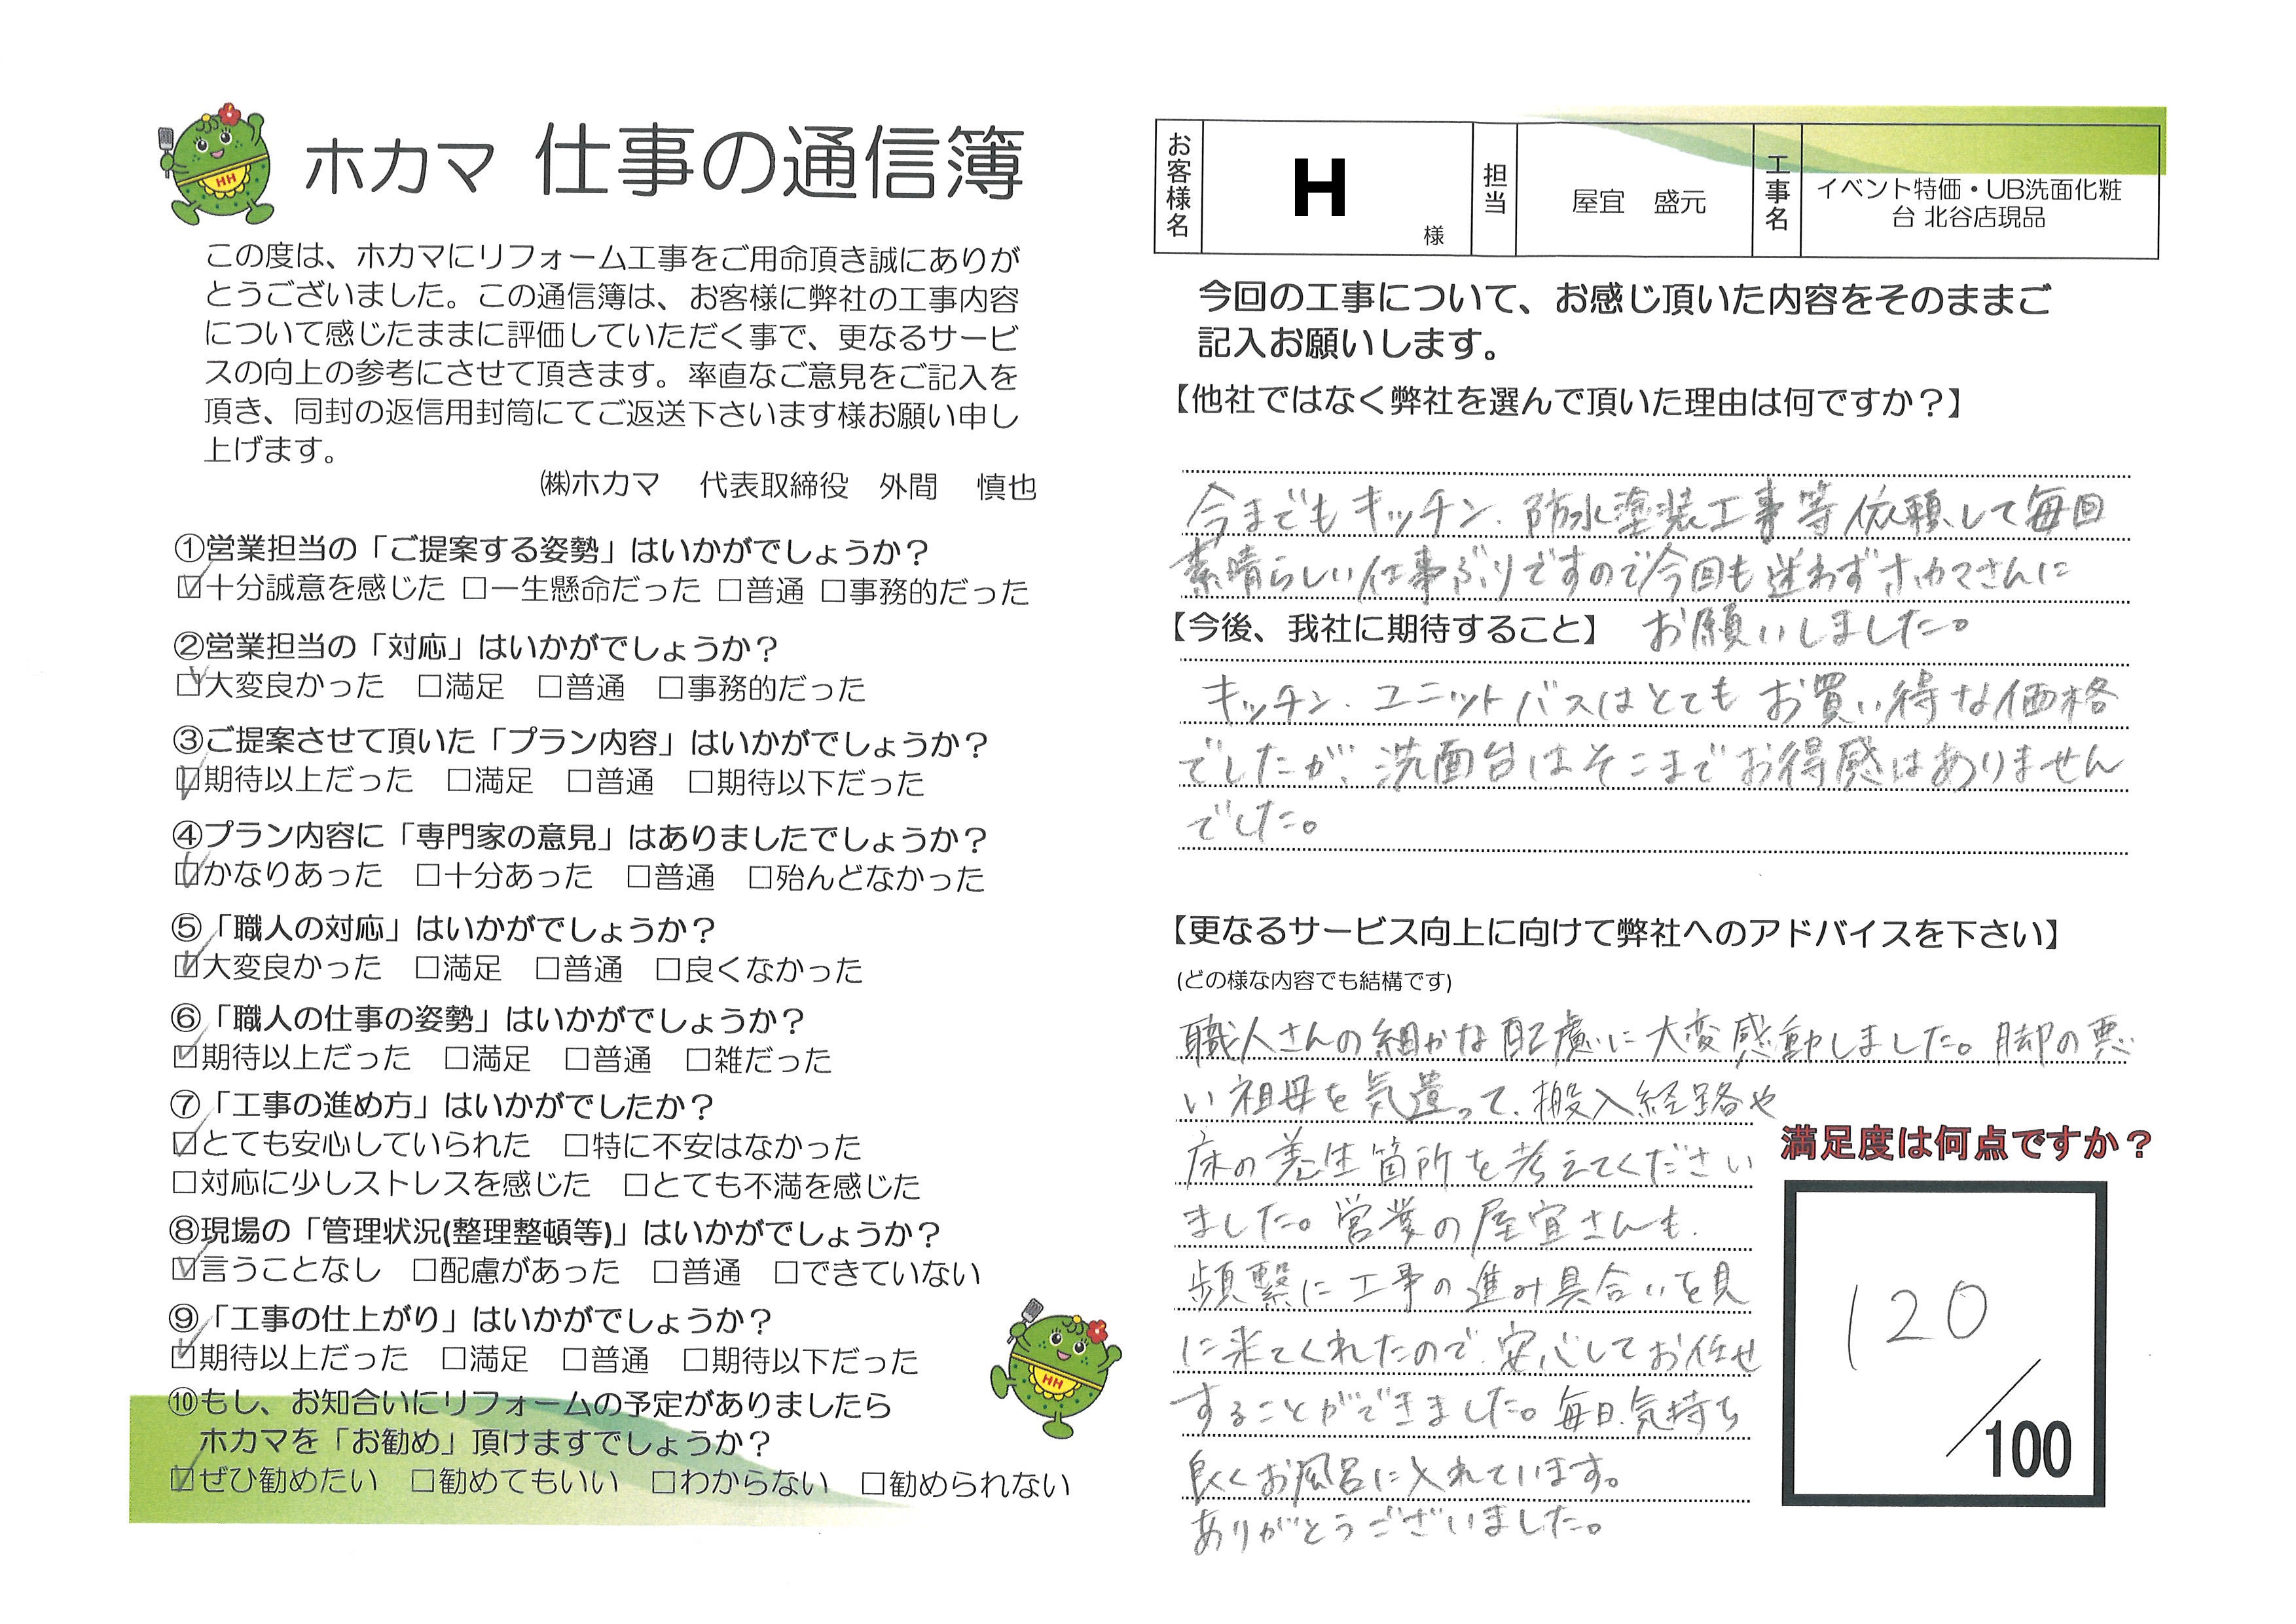 ホカマ 仕事の通信簿
この度は、ホカマにリフォーム工事をご用命頂き誠にありが
とうございました。この通信簿は、お客様に弊社の工事内容
について感じたままに評価していただく事で、更なるサービ
スの向上の参考にさせて頂きます。率直なご意見をご記入を
頂き、同封の返信用封筒にてご返送下さいます様お願い申し
上げます。
㈱ホカマ 代表取締役 外間 慎也
①営業担当の「ご提案する姿勢」はいかがでしょうか？
☑十分誠意を感じた □一生懸命だった □普通 □事務的だった
②営業担当の「対応」はいかがでしょうか？
☑大変良かった □満足 □普通 □事務的だった
③ご提案させて頂いた「プラン内容」はいかがでしょうか？
☑期待以上だった □満足 □普通 □期待以下だった
④プラン内容に「専門家の意見」はありましたでしょうか？
☑かなりあった □十分あった □普通 □殆んどなかった
⑤「職人の対応」はいかがでしょうか？
☑大変良かった □満足 □普通 □良くなかった
⑥「職人の仕事の姿勢」はいかがでしょうか？
☑期待以上だった □満足 □普通 □雑だった
⑦「工事の進め方」はいかがでしたか？
☑とても安心していられた □特に不安はなかった
□対応に少しストレスを感じた □とても不満を感じた
⑧現場の「管理状況(整理整頓等)」はいかがでしょうか？
☑言うことなし □配慮があった □普通 □できていない
⑨「工事の仕上がり」はいかがでしょうか？
☑期待以上だった □満足 □普通 □期待以下だった
⑩もし、お知合いにリフォームの予定がありましたら
ホカマを「お勧め」頂けますでしょうか？
☑ぜひ勧めたい □勧めてもいい □わからない □勧められない
お客様名 H 様 担当 屋宜 盛元 工事名 イベント特価・UB洗面化粧
台 北谷店現品
今回の工事について、お感じ頂いた内容をそのままご
記入お願いします。
【他社ではなく弊社を選んで頂いた理由は何ですか？】
今までもキッチン、防水塗装工事等依頼して毎回
素晴らしい仕事ぶりですので今回も迷わずホカマさんに
お願いしました。
【今後、我社に期待すること】
キッチン、ユニットバスはとてもお買い得な価格
でしたが、洗面台はそこまでお得感はありません
でした。
【更なるサービス向上に向けて弊社へのアドバイスを下さい】
(どの様な内容でも結構です)
職人さんの細かな配慮に大変感動しました。脚の悪
い祖母を気遣って、搬入経路や
床の養生箇所を考えてください
ました。営業の屋宜さんも、
頻繁に工事の進み具合いを見
に来てくれたので、安心してお任せ
することができました。毎日、気持ち
良くお風呂に入れています。
ありがとうございました。
満足度は何点ですか？
120
/100
HH
HH